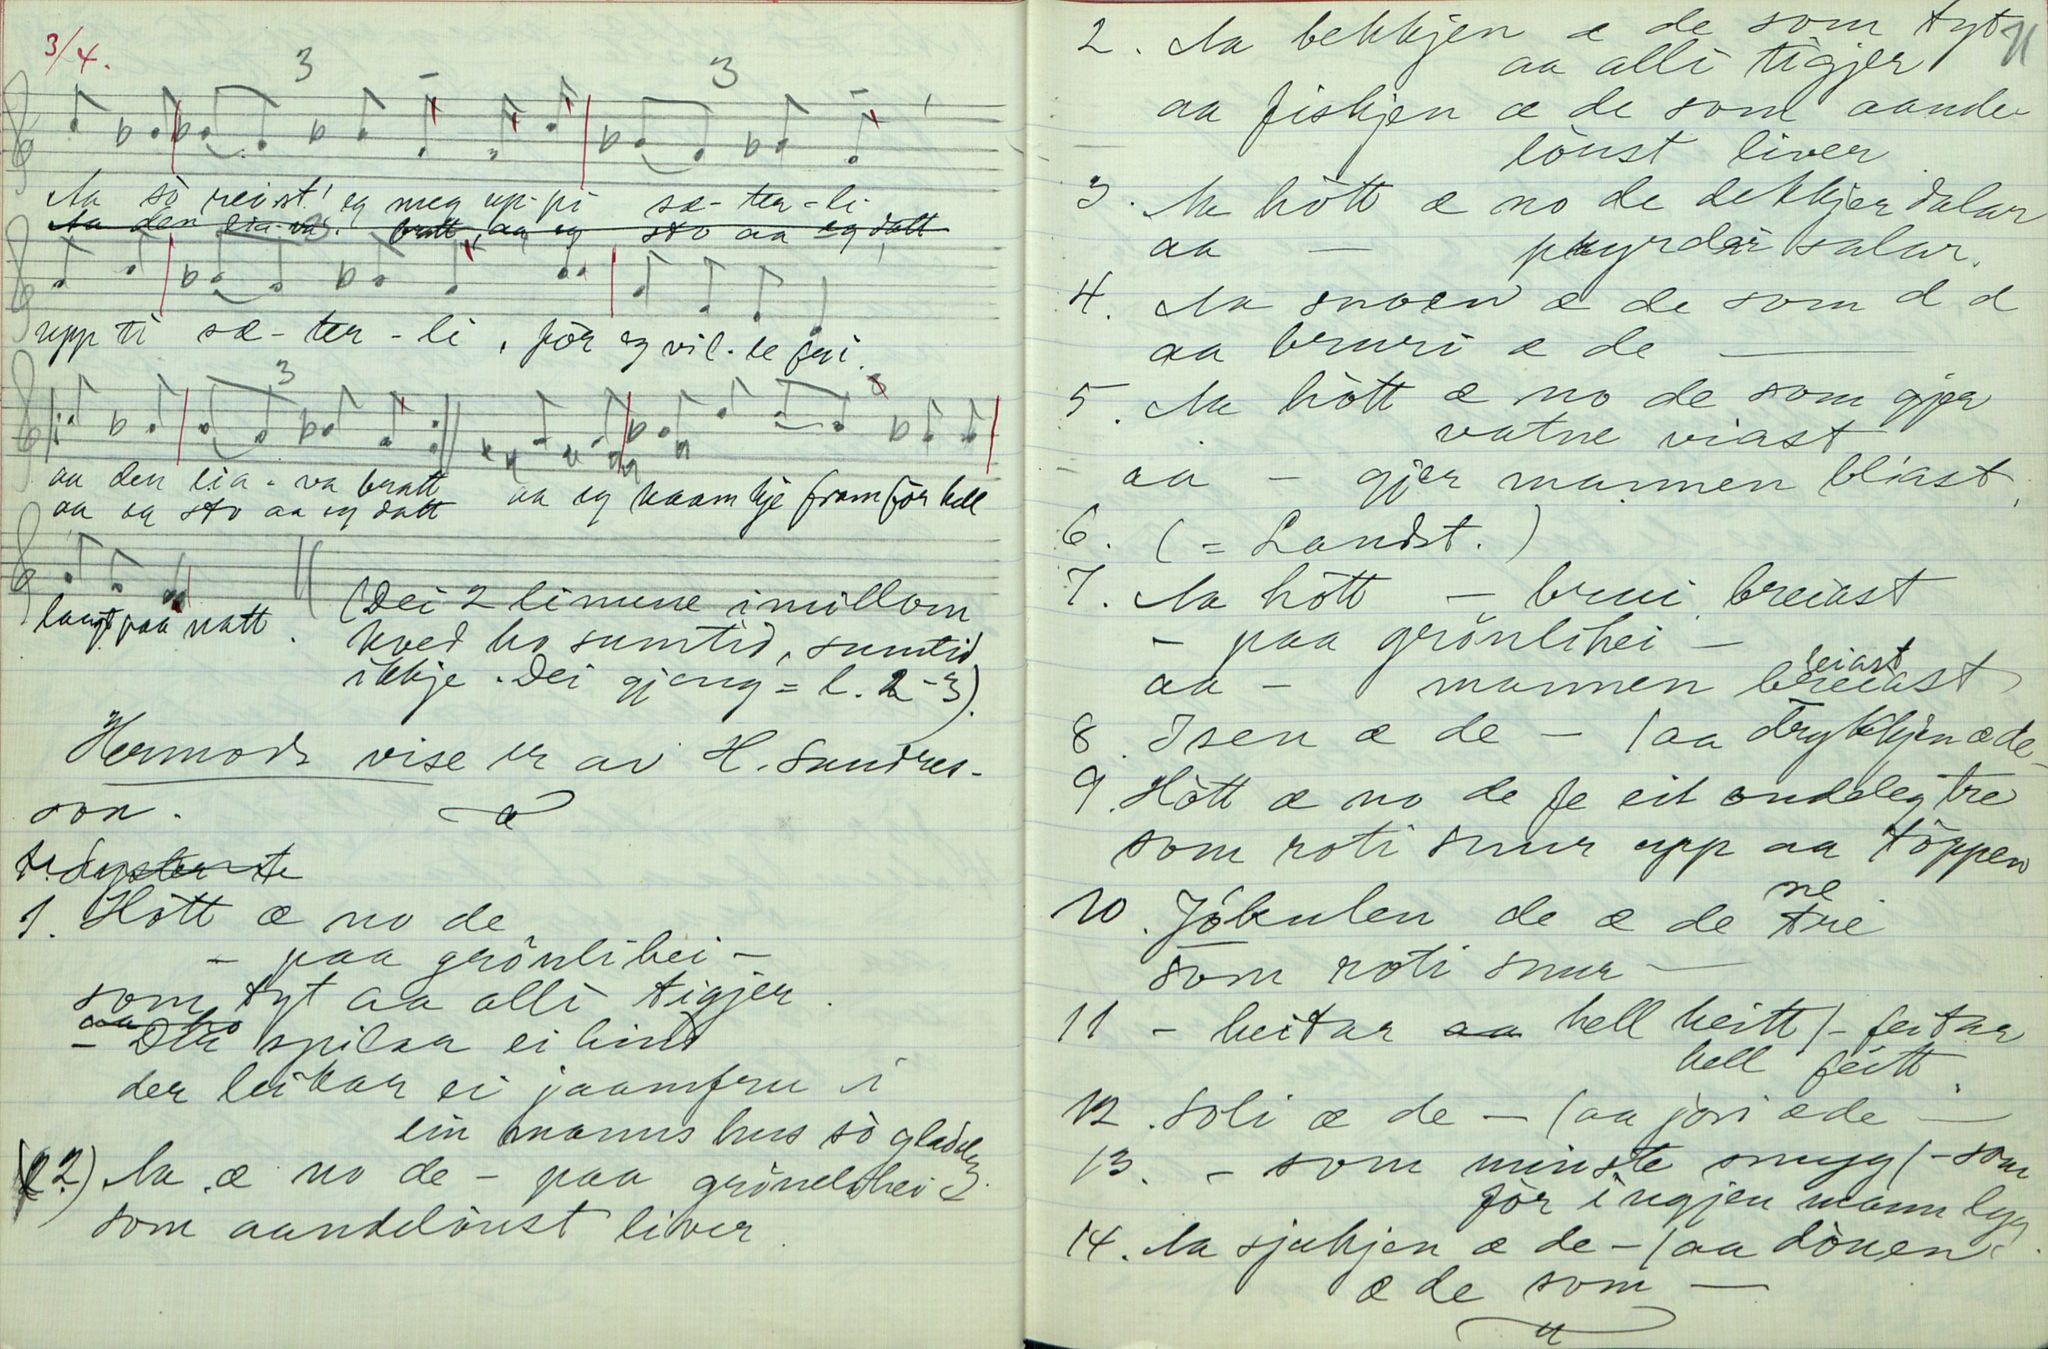 3/4.
3 3
Aa sò reist' eg meg up-pi sæ-ter-li
Aa den lia va bratt, aa eg sto aa eg datt
3
upp ti sæ-ter-li, før eg vil-le fri.
3 3
aa den lia-va bratt aa eg kaam kje fram før hell
aa eg sto aa eg datt
langt paa natt.
(Dei 2 linune imillom
kved ho sumtid, sumtid
ikkje. Dei gjeng = l. 2-3).
Hermods vise er av H. Sundres-
son.
1. Hòtt æ no de
- paa grönlihei -
som tyt aa alli tigjer.
- Der spilar ei hind
der leikar ei jaamfru i
ein manns hus sò glade
(2) Aa æ no de - paa grönelihei
som aandelöust liver
71
2. Aa bekkjen æ de som tyt
aa alli tigjer
aa fiskjen æ de som aande
löust liver
3. Aa hòtt æ no de dekkjer dalar
aa — pryder salar.
4. Aa snoen æ de som d d
aa bruri æ de —
5. Aa hòtt æ no de som gjer
vatne viast
aa - gjer mannen bliast.
6. (= Landst.)
7. Aa hòtt - brui breiast
- paa grönlihei -
aa - mannen breiast
leiast
8. Isen æ de - / aa drykkjen æ de -
9. Hòtt æ no de fe eit ondeleg tre
som roti snur upp aa töppen ne
10. Jökulen de æ de trei
som roti snur —
11 - heitar aa hell heitt / - feitar
hell feitt.
12. Soli æ de - / aa jori æ de —
13. - som minste mugg / - som
för ingjen mann lyg.
14. Aa sjukjen æ de - / aa döuen
æ de som —